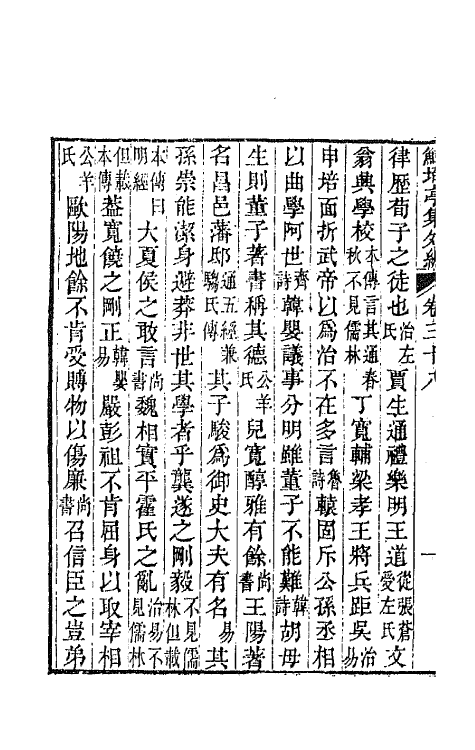 鮚埼亭集外編 卷三十八 一
律歷荀子之徒也治左氏賈生通禮樂明王道從張蒼愛左氏文
翁興學校本傳言其通春秋不見儒林丁寬輔梁孝王將兵距吳治易
申培面折武帝以爲治不在多言魯詩轅固斥公孫丞相
以曲學阿世齊詩韓嬰議事分明雖董子不能難韓詩胡母
生則董子著書稱其德公羊氏兒寬醇雅有餘尚書王陽著
名昌邑藩邸通五經兼騶氏傳其子駿爲御史大夫有名易其
孫崇能潔身避莽非世其學者乎龔遂之剛毅不見儒林但載
本傳曰明經大夏侯之敢言尚書魏相實平霍氏之亂治易不見儒林
但載本傳蓋寬饒之剛正韓嬰易嚴彭祖不肯屈身以取宰相
公羊氏歐陽地餘不肯受賻物以傷廉尚書召信臣之豈弟